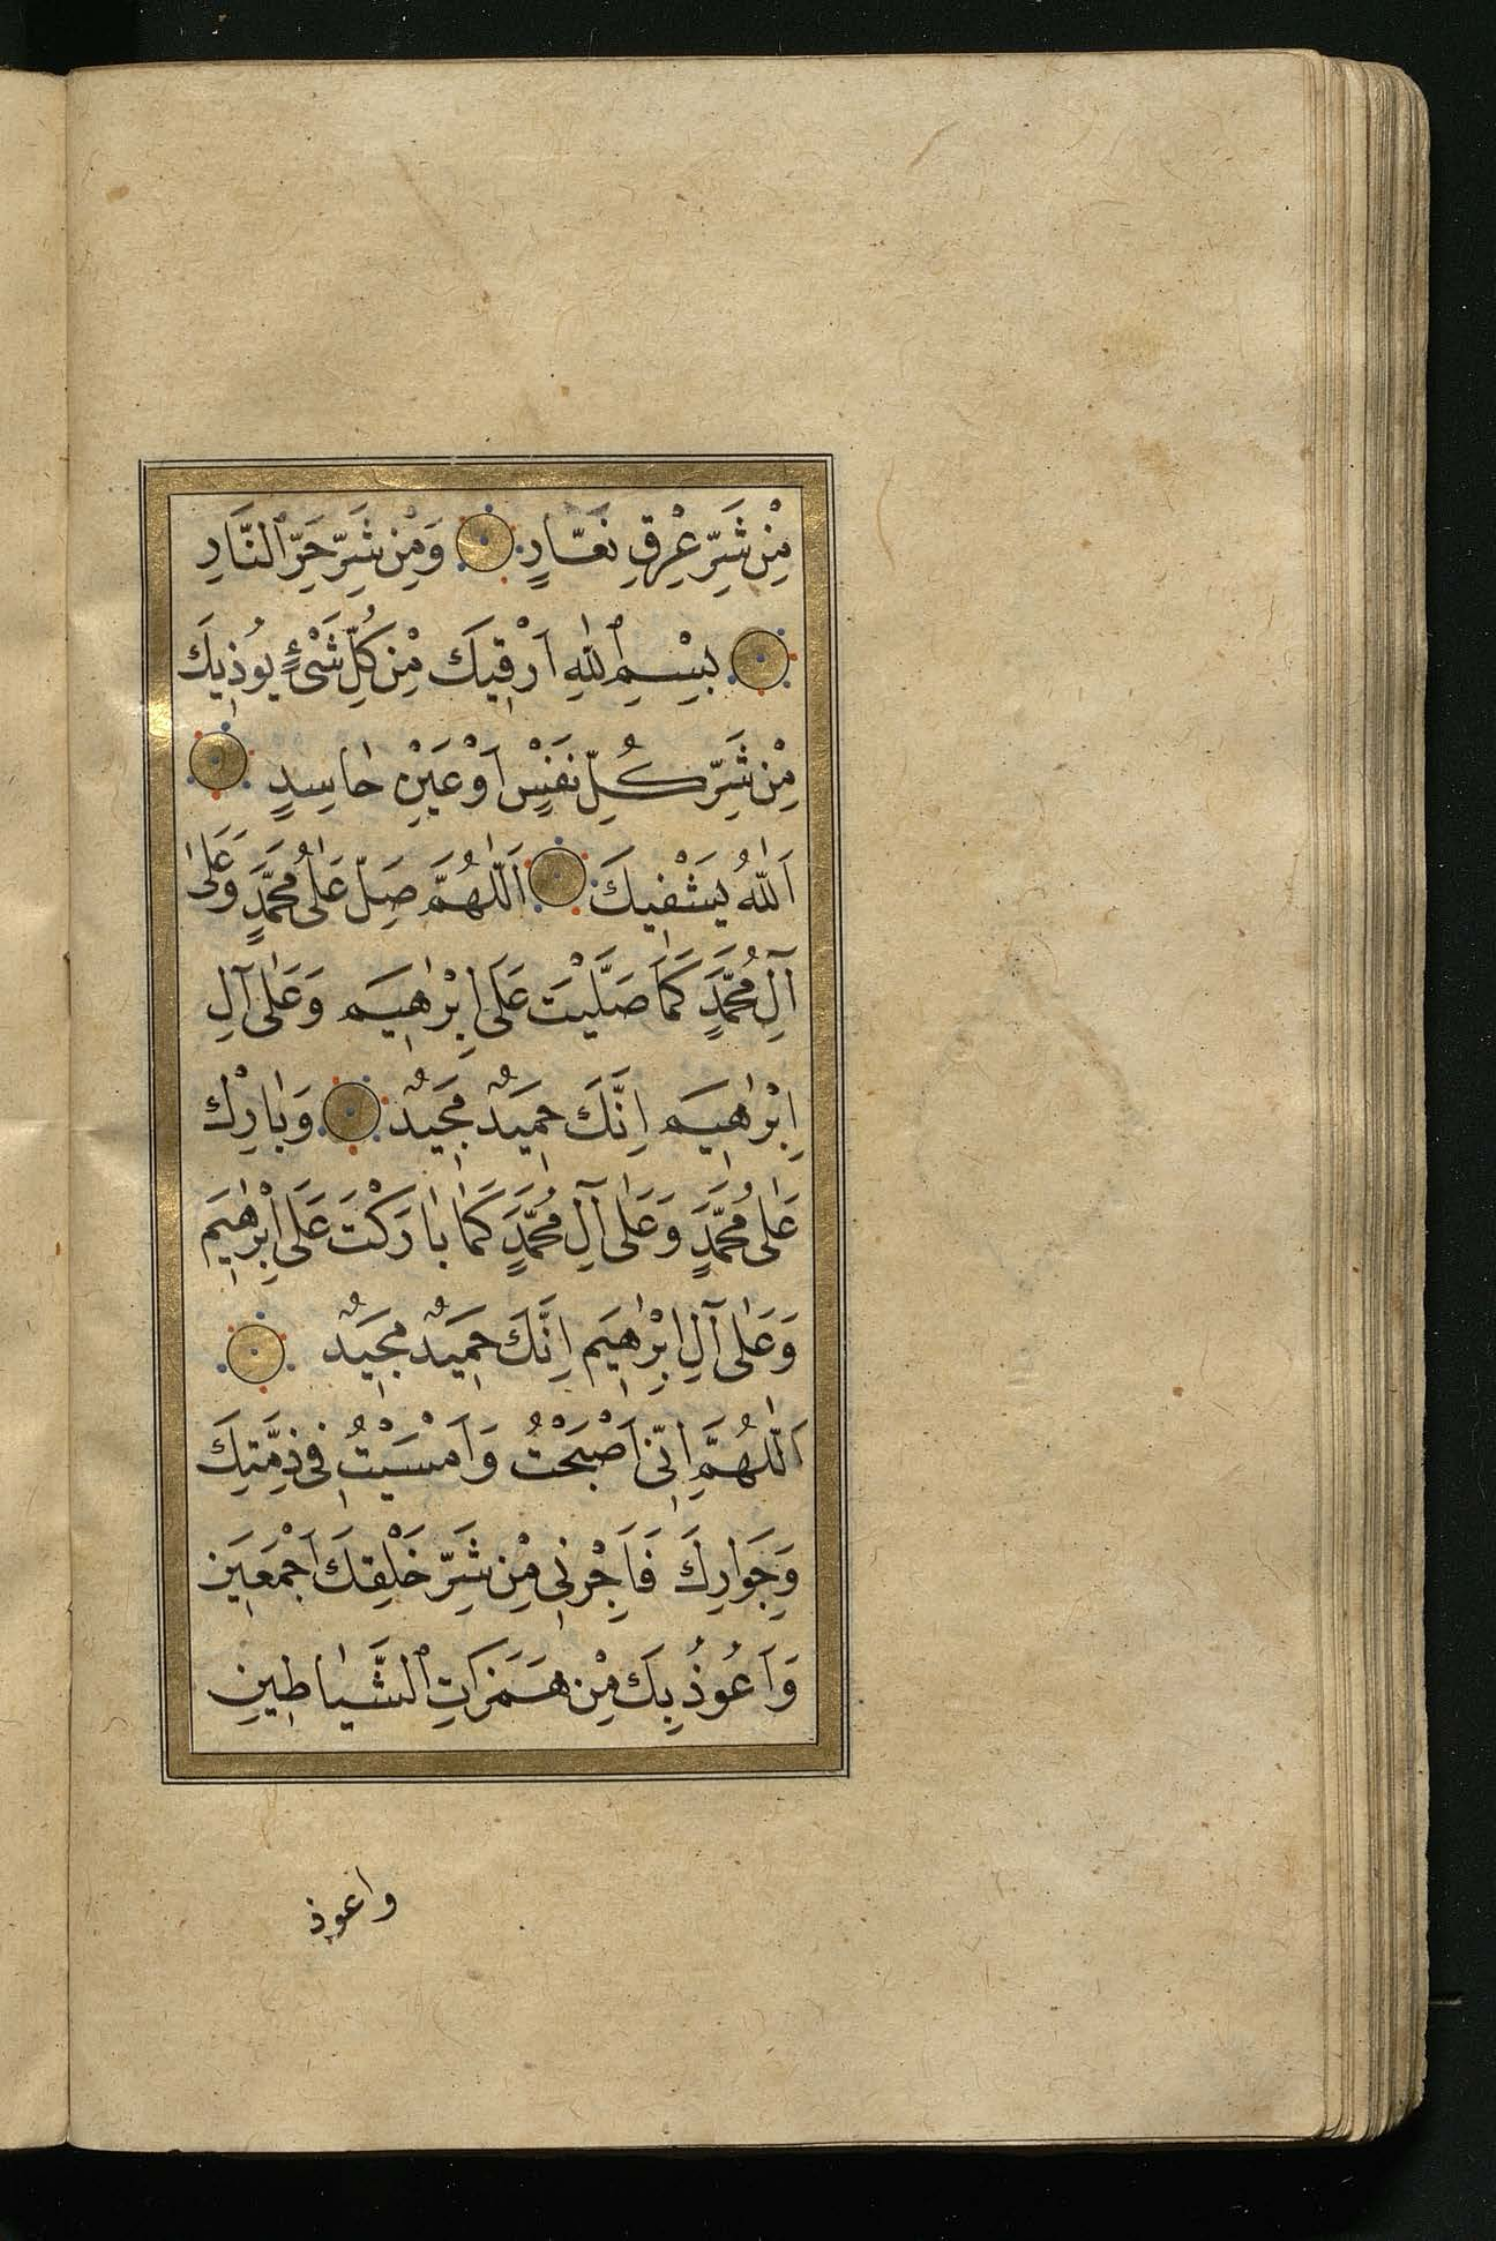 مِنْ شَرِّ عِرْقٍ نَعَّارٍ وَمِنْ شَرِّ حَرِّ ٱلنَّارِ
بِسْمِ ٱللّٰهِ اَرْقِيكَ مِنْ كُلِّ شَىْءٍ يُوذِيكَ
مِنْ شَرِّ كُلِّ نَفْسٍ اَوْ عَيْنٍ حَاسِدٍ
اَللّٰهُ يَشْفِيكَ اَللّٰهُمَّ صَلِّ عَلٰى مُحَمَّدٍ وَعَلٰى
آلِ مُحَمَّدٍ كَمَا صَلَّيْتَ عَلٰى اِبْرٰهِيمَ وَعَلٰى آلِ
اِبْرٰهِيمَ اِنَّكَ حَمِيدٌ مَجِيدٌ وَبَارِكْ
عَلٰى مُحَمَّدٍ وَعَلٰى آلِ مُحَمَّدٍ كَمَا بَارَكْتَ عَلٰى اِبْرٰهِيمَ
وَعَلٰى آلِ اِبْرٰهِيمَ اِنَّكَ حَمِيدٌ مَجِيدٌ
اَللّٰهُمَّ اِنِّى اَصْبَحْتُ وَاَمْسَيْتُ فِى ذِمَّتِكَ
وَجِوَارِكَ فَاَجِرْنِى مِنْ شَرِّ خَلْقِكَ اَجْمَعِينَ
وَاَعُوذُ بِكَ مِنْ هَمَزَاتِ ٱلشَّيَاطِينِ
واعوذ